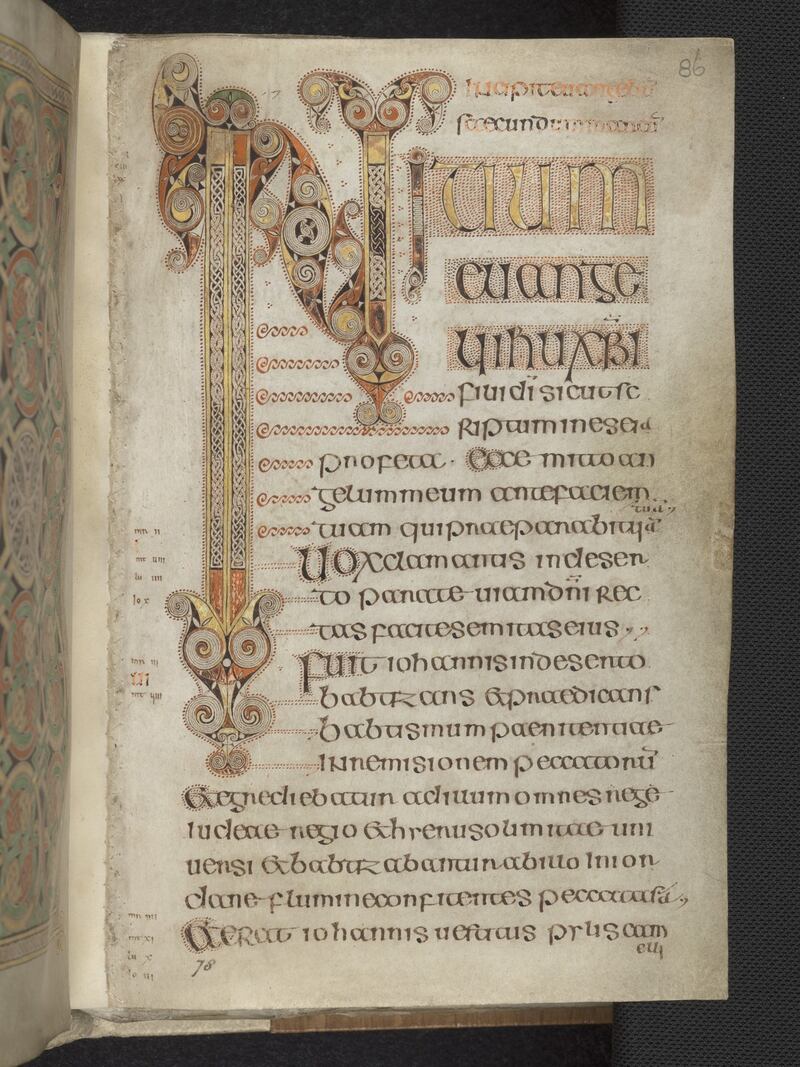 86
Incipit euangeliū
secundum marcū
INITIUM
EUANGE
LII IHU XPI
filii dī sicut sc
riptum in eseia
profeta · Ecce mitto an
gelum meum ante faciem
tuam qui praeparabit uiā
tuā
Uox clamantis in deser
to parate uiam dn̄i rec
tas facite semitas eius
Fuit iohannis in deserto
babtizans & praedicans
babtismum paenitentiae
in remisionem peccatorū
Et egrediebatur ad illum omnes rege
Iudeae regio & hierusolimitae uni
uersi & babtizabantur ab illo In ior
dane flumine confitentes peccata sua
Et erat iohannis uestitus pylis cam
elli
78